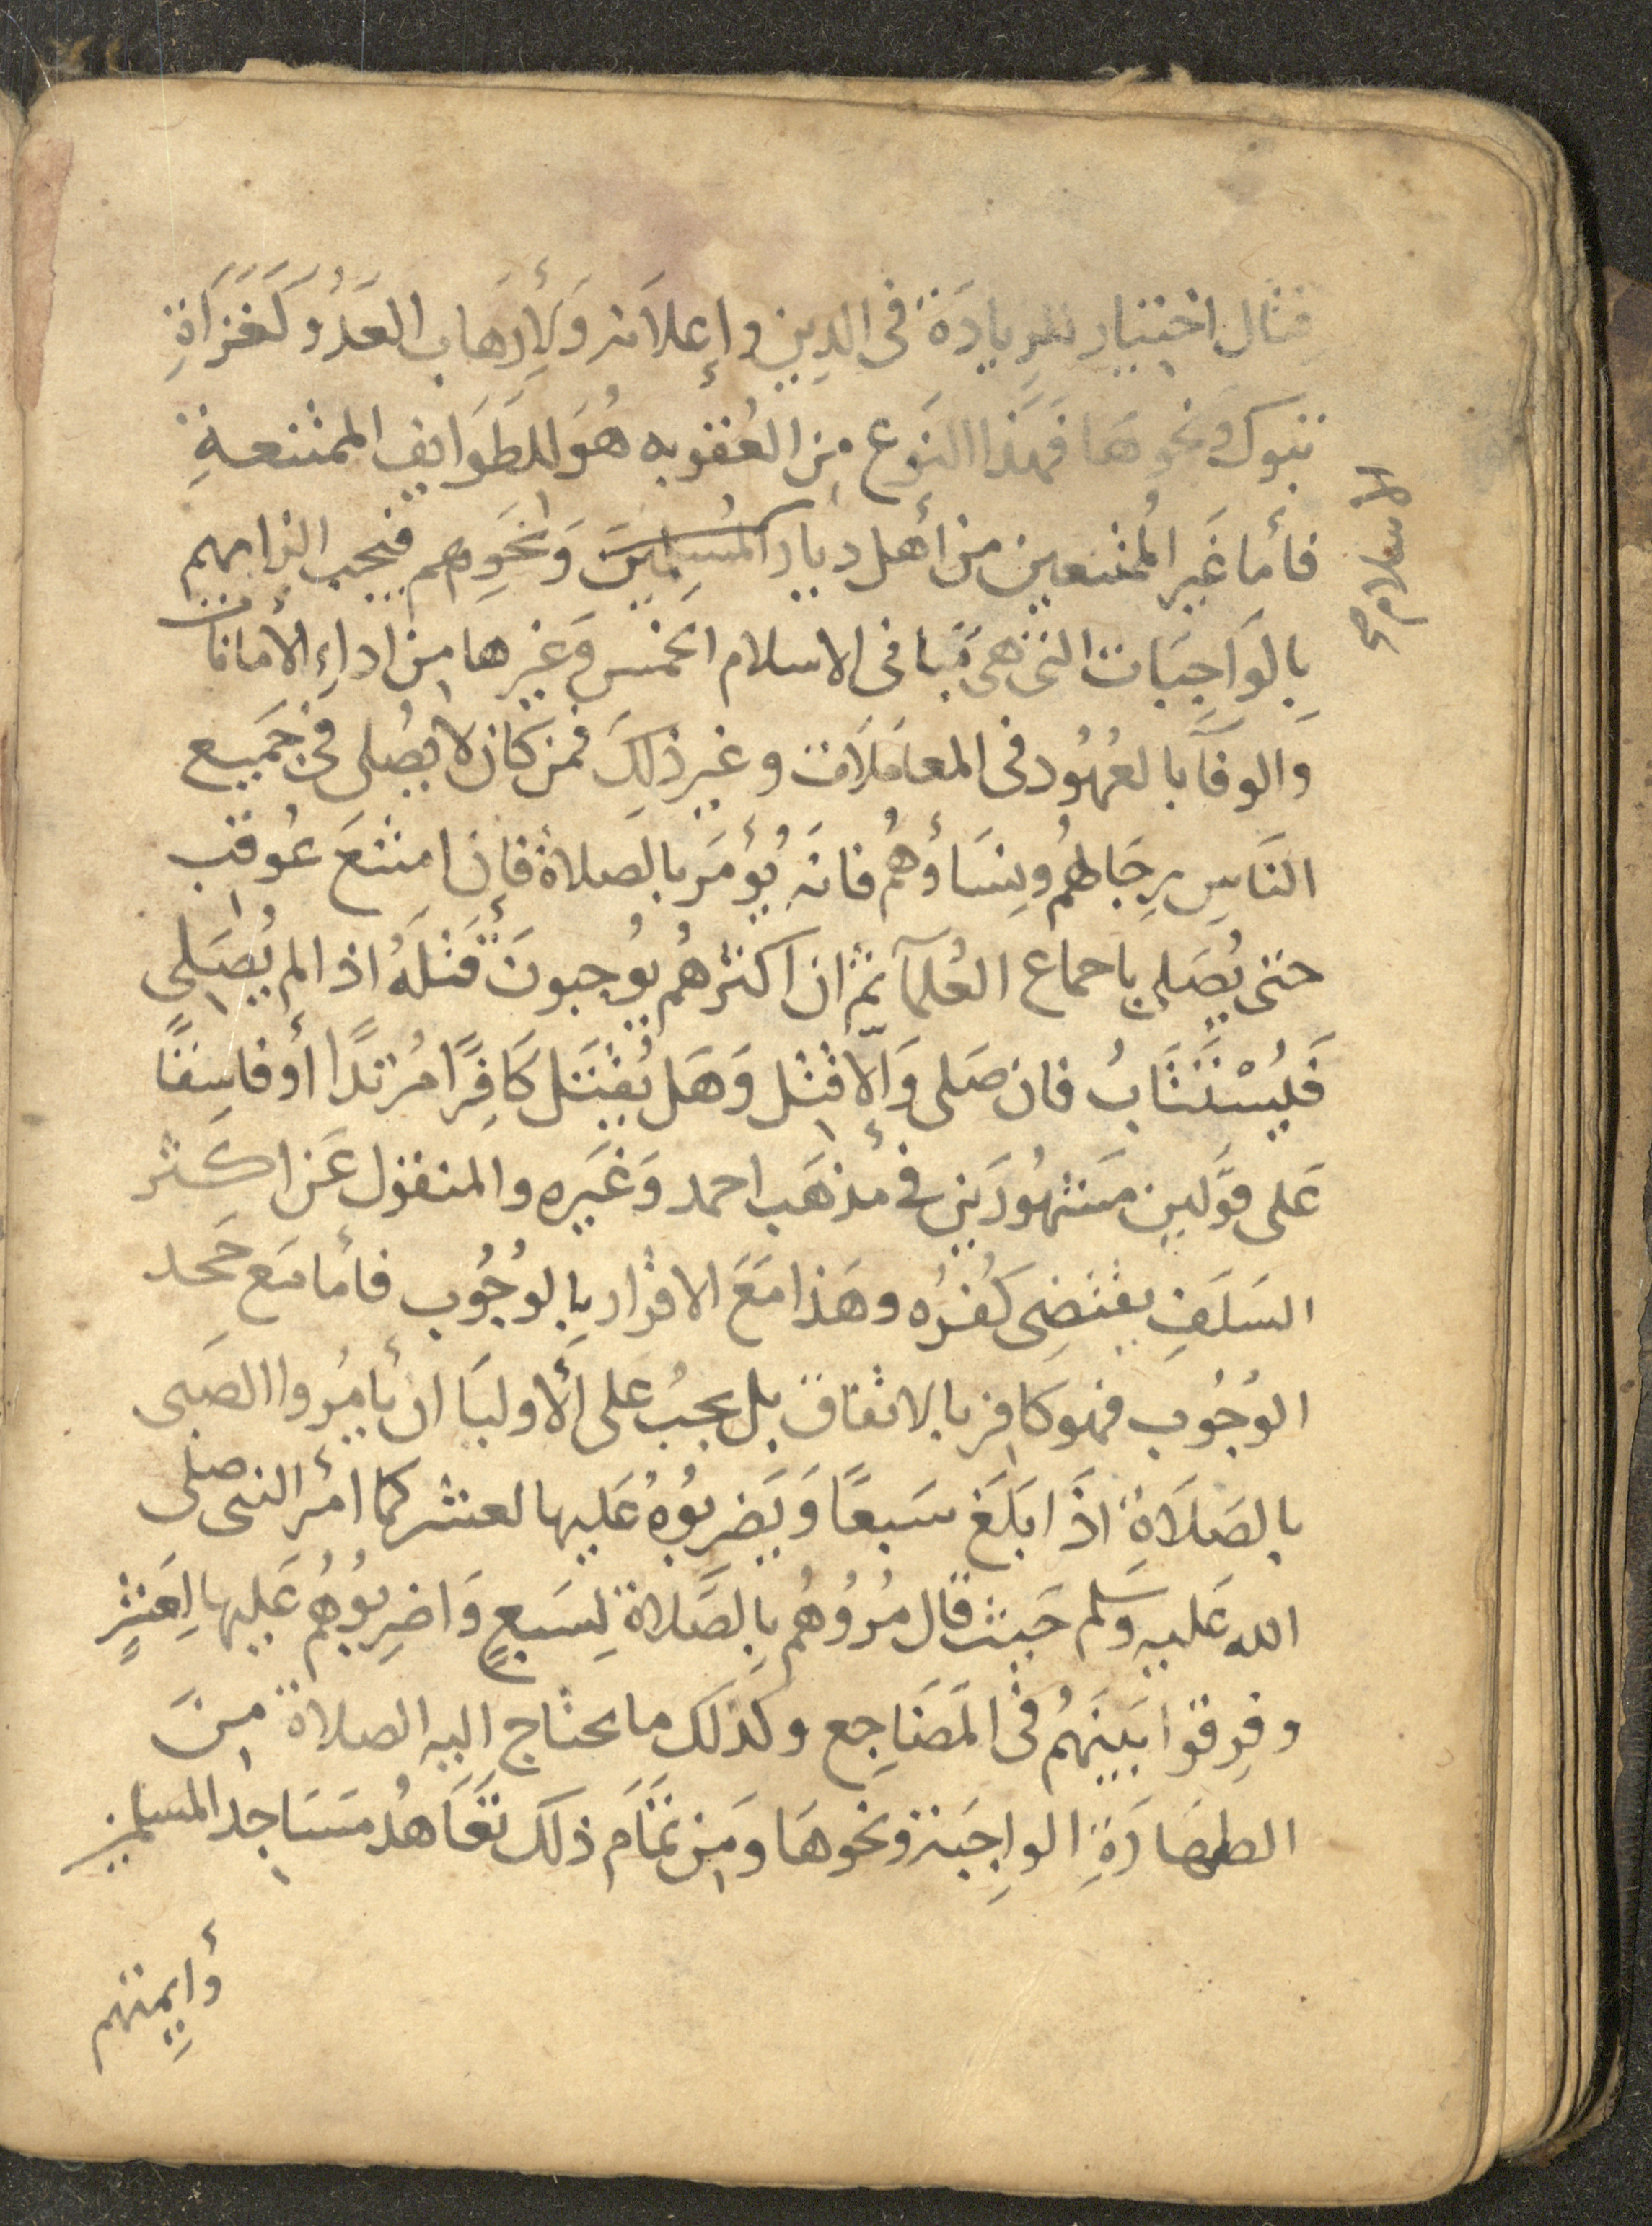 قتال اختيار للزيادَة في الدِين وإعلامه وَلإِرهَاب العَدُو كَغَزَاةِ
تبوك ونحوهَا فهَذا النَوع مِن العُقوبه هُوَ للطَوَايف الممتنعةِ
فأما غَير المُمتنعين من أهل ديار المُسلِمِينَ وَنحَوِهم فيجب الزامهم
بِالوَاجبَات التى هى مَبَانى الاسلام الخمس وَغيرها مِن ادَاءِ الأمانات
وَالوَفَآ بالعُهُود فى المعامَلاَت وغير ذلِكَ فمن كان لا يصُلى مِن جَميع
النَاسِ رِجَالهُم ونِسَاؤُهُم فانه يُؤمَر بالصلاة فإن امتنعَ عُوقب
حتى يُصَلى باجماع العُلمآ ثم ان اكثرهُم يُوجبونَ قَتلَهُ اذا لم يُصَلى
فَيُسْتَتَابُ فان صَلى وَإلاّ قتل وَهَل يُقتَل كَافِرًا مُرتدًا أو فاسِقًا
عَلى قوَلين مَشهُورَين في مذهَب احمد وَغَيره والمنقول عَن اكثر
السَلَفِ يقتضِى كُفرُه وهَذا مَعَ الاقرار بِالوُجُوب فأما مَع جَحد
الوُجُوب فهو كافر بالاتفاق بل يجبُ على الأوليَا ان يأمُروا الصَبى
بالصَلاَةِ اذَا بَلَغ سَبعًا وَيَضربُوهُ عَليها لعشر كما امَر النبى صلى
الله عَليه وسَلم حَيث قال مُرُوُهُم بِالصَّلاة لِسَبعٍ وَاضرِبُوُهُم عَليها لِعَشرٍ
وفرِقوا بَينَهُم فى المَضَاجِع وكذلك ما يحتاج اليه الصلاة مِنَ
الطهَارَةِ الواجِبَة ونحوهَا ومَن تمَام ذلك تعَاهُد مسَاجد المسلمين
وأيمتهم
الاسلام صح